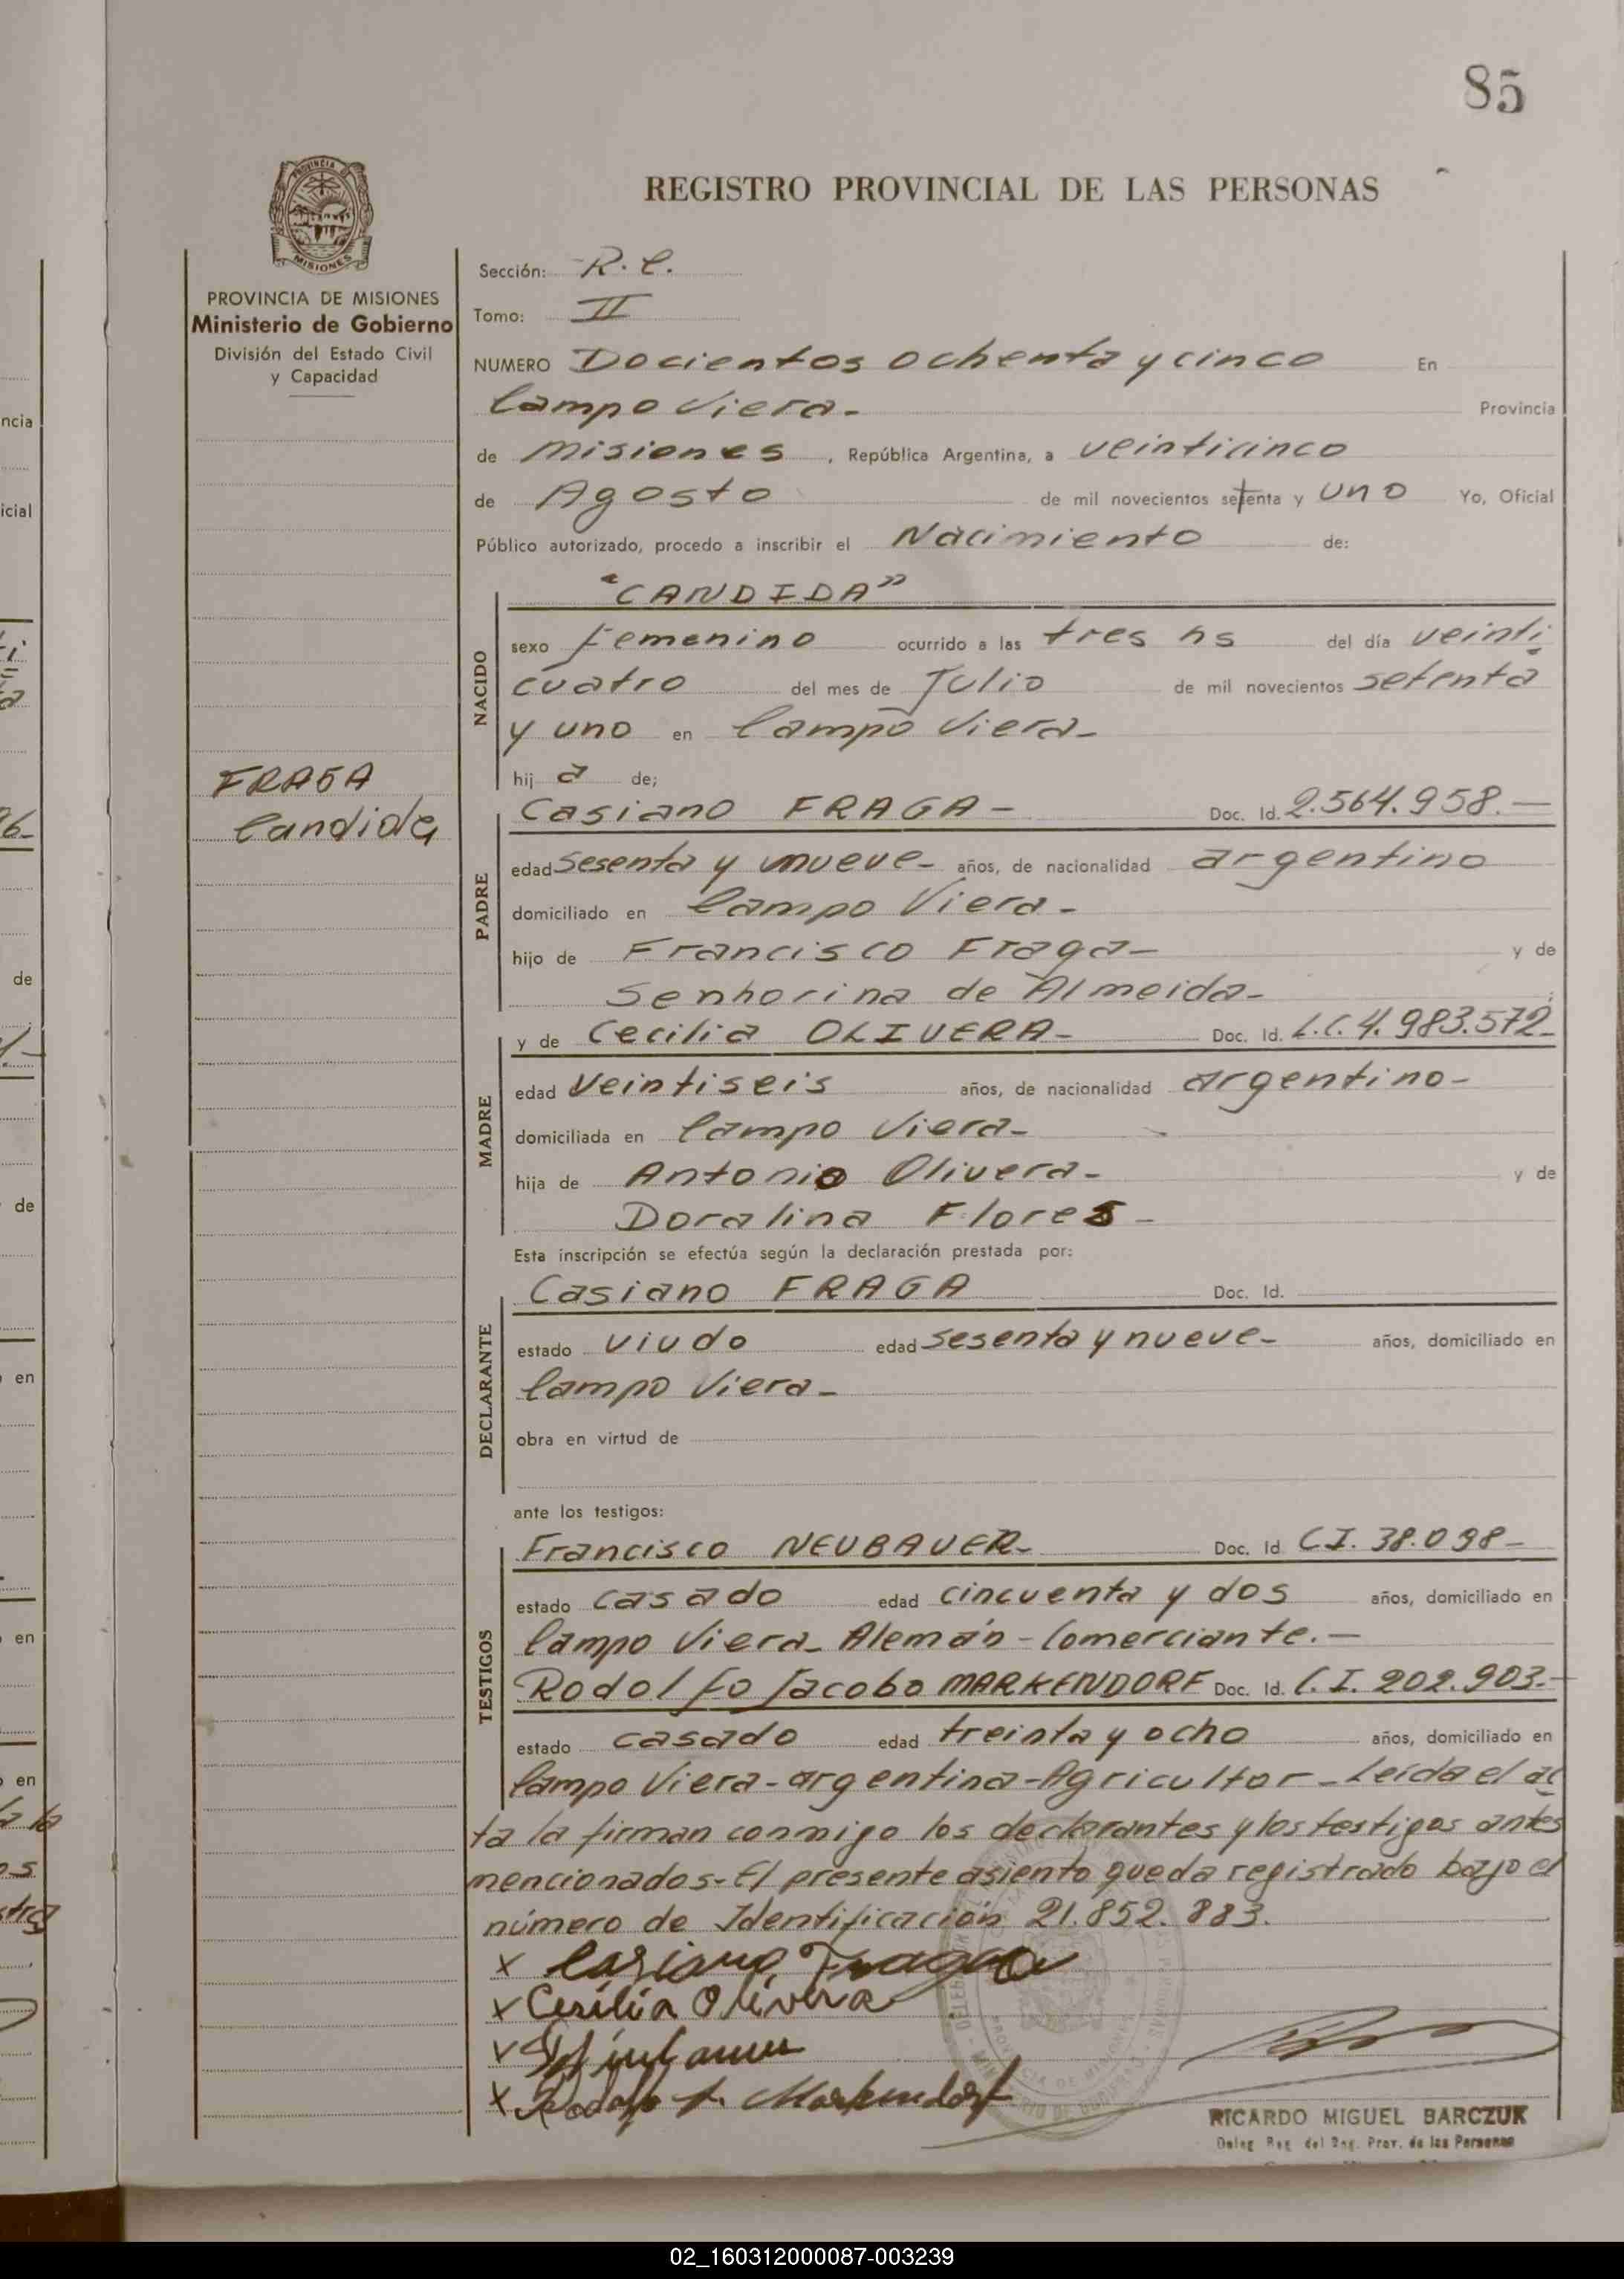 85
REGISTRO PROVINCIAL DE LAS PERSONAS
PROVINCIA
MISIONES
PROVINCIA DE MISIONES
Ministerio de Gobierno
División del Estado Civil
y Capacidad
FRAGA
Candida
Sección: R.C.
Tomo: II
NUMERO Docientos ochenta y cinco En
Campo Viera- Provincia
de Misiones, República Argentina, a veinticinco
de Agosto de mil novecientos setenta y uno Yo, Oficial
Público autorizado, procedo a inscribir el Nacimiento de:
"CANDIDA"
NACIDO
sexo femenino ocurrido a las tres hs del día veinti
cuatro del mes de Julio de mil novecientos setenta
y uno en Campo Viera-
hij a de;
Casiano FRAGA- Doc. Id. 2.564.958.—
PADRE
edad Sesenta y nueve- años, de nacionalidad argentino
domiciliado en Campo Viera-
hijo de Francisco Fraga- y de
Senhorina de Almeida-
y de Cecilia OLIVERA- Doc. Id. L.C. 4.983.572-
MADRE
edad Veintiseis años, de nacionalidad argentino-
domiciliada en Campo Viera-
hija de Antonio Olivera- y de
Doralina Flores-
Esta inscripción se efectúa según la declaración prestada por:
Casiano FRAGA Doc. Id.
DECLARANTE
estado viudo edad sesenta y nueve- años, domiciliado en
Campo Viera-
obra en virtud de
ante los testigos:
Francisco NEUBAUER- Doc. Id. C.I. 38.098-
TESTIGOS
estado casado edad cincuenta y dos años, domiciliado en
Campo Viera- Alemán-Comerciante.—
Rodolfo Jacobo MARKENDORF Doc. Id. C.I. 202.903.-
estado casado edad treinta y ocho años, domiciliado en
Campo Viera-argentino-Agricultor-Leída el ac
ta la firman conmigo los declarantes y los testigos antes
mencionados-El presente asiento queda registrado bajo el
número de Identificación 21.852.883.
x Casiano Fraga
x Cecilia Olivera
x Rodolfo J. Markendorf
RICARDO MIGUEL BARCZUK
Deleg. Reg. del Reg. Prov. de las Personas
02_160312000087-003239